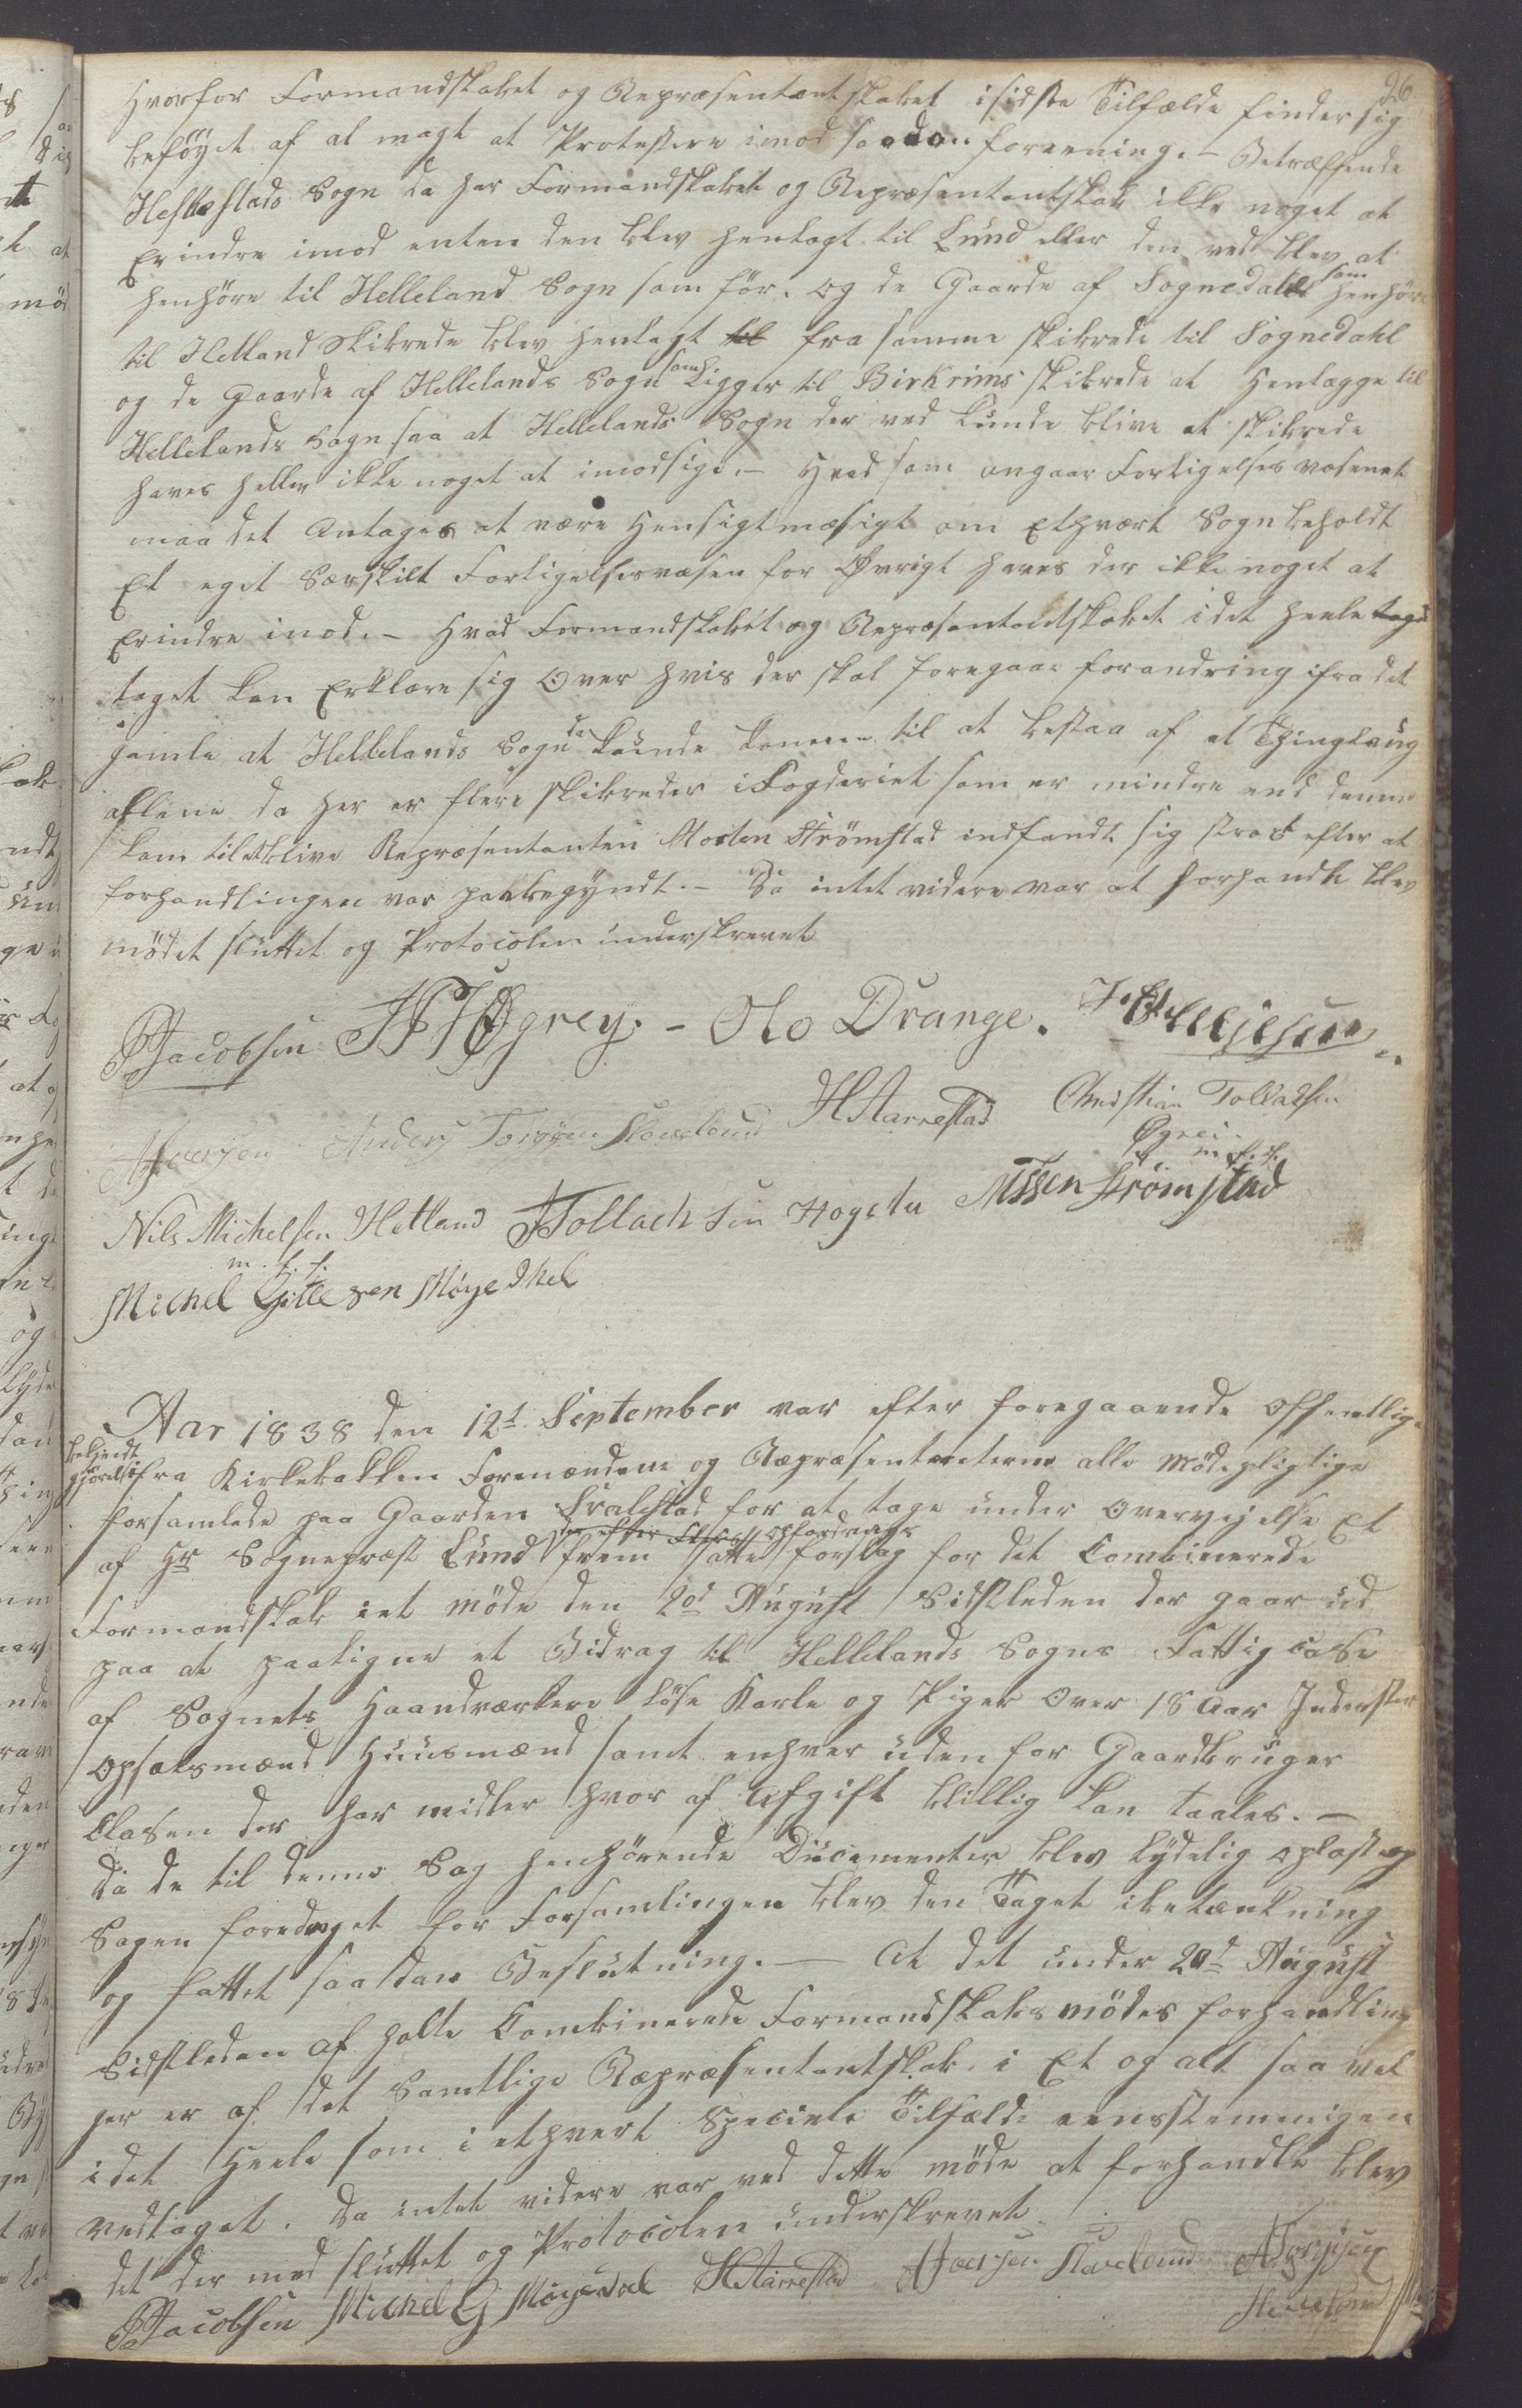 26
Hvorfor Formandskabet og Repræsentantskabet i sidste Tilfælde finder sig
beføyet af al magt at Protestere imod saadan forening. - Betræffende
Heskestads Sogn da har Formandskabet og Repræsentantskab ikke noget at
Erindre imod enten den blev henlagt til Lund eller den ved blev at
henhøre til Helleland Sogn som før. og de Gaarde af Sognedahl som henhøre
til Hetland Skibrede blev henlagt til fra samme skibrede til Sognedahl
og de Gaarde af Hellelands Sogn som Ligger til Birkrims skibrede at Henlægge til
Hellelands Sogn saa at Hellelands Sogn der ved kunde blive et skibrede
haves heller ikke noget at imodsige. - Hvad som angaar Forligelses væsenet
maa det Antages at være Hensigtmæsigt om Ethvært Sogn beholdt
Et eget Særskilt Forligelsesvæsen for Øvrigt haves der ikke noget at
Erindre imod. - Hvad Formandskabet og Repræsentantskabet i det heele tage
taget kan Erklære sig Over hvis der skal foregaae forandring ifra det
gamle at Hellelands Sogn da kunde komme til at bestaa af et Thinglaug
allene da her er flere skibreder i Fogderiet som er mindre end denne
kom til at blive Repræsentanten Morten Strømstad indfandt sig strax efter at
forhandlingen var paabegyndt. - Da intet videre var at forhandle blev
mødet sluttet og Protocolen underskrevet
PJacobsen Øgrey. - Olo Drange.
Anders Skaarland HAarrestad Christian Tollaksen
Øgrei
m. f. P.
Nils Michelsen Hetland Tollach sen Hogetu Strømstad
m. f. P.
Michel Gitlesen Møgedhel
Aar 1838 den 12t September var efter foregaaende Offentlig
bekjendt
gjørelse ifra Kirkebakken Formændene og Repræsentanterne alle Mødepligtige
forsamlede paa Gaarden Svalestad for at tage under Overvejelse Et
af Hr Sognepræst Lund der efter opfordrings frem satte forslag for det Combinerede
Formandskab i et møde den 20d August Sidstleden der gaar ud
paa at paaligne et Bidrag til Hellelands Sogns Fattig Casse
af Sognets Haandværkere løse Karle og Piger Over 18 Aar Inderster
Opsætsmænd Huusmænd samt enhver uden for Gaardbruger
Classen der har midler hvor af Afgift billig kan taales. -
Da de til denne Sag henhørende Documenter blev lydelig oplæst og
Sagen foredraget for Forsamlingen blev den Taget i betænkning
og fattet saadan Beslutning. - At det under 20d August
Sidstleden af holte Combinerede Formandskabs mødes forhandling
her er af det Samtlige Repræsentantskab i Et og alt saa vel
i det Heele som i ethvert Speciele Tilfælde eensstemmigen
vedtaget. Da intet videre var ved dette møde at forhandle blev
det der med sluttet og Protocolen underskrevet.
PJacobsen Michel G Møgedal HAarrestad Skaarland